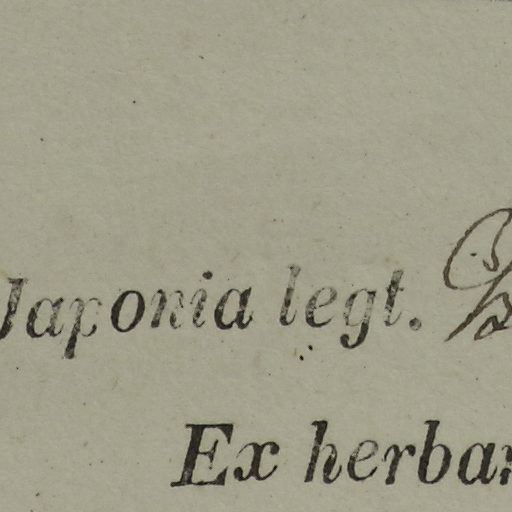 Japonia legt.
Ex herbar